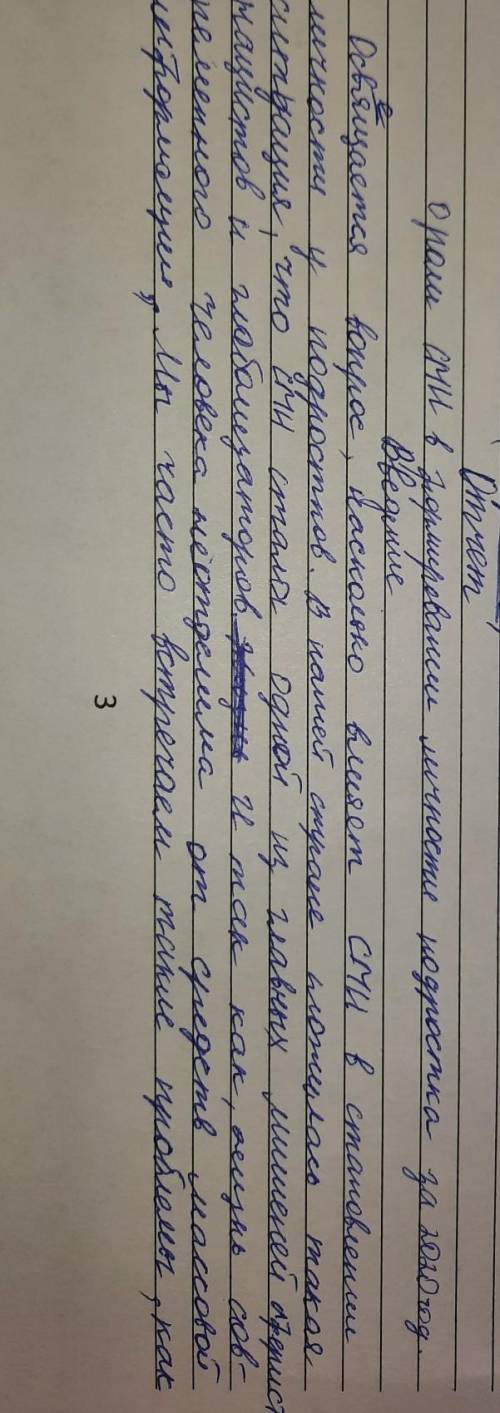 Отчет
о роли СМИ в формировании личности подростка за 2020 год.
Введние
Освещается вопрос, насколько влияет СМИ в становлении
личности у подростков. В нашей стране сложилась такая
ситуация, что СМИ стала одной из главных мишеней
нацистов и глобализаторов. И так как, жизнь сов-
ременного человека неотделима от средств массовой
информации, Мы часто встречаем такие проблемы, как
3